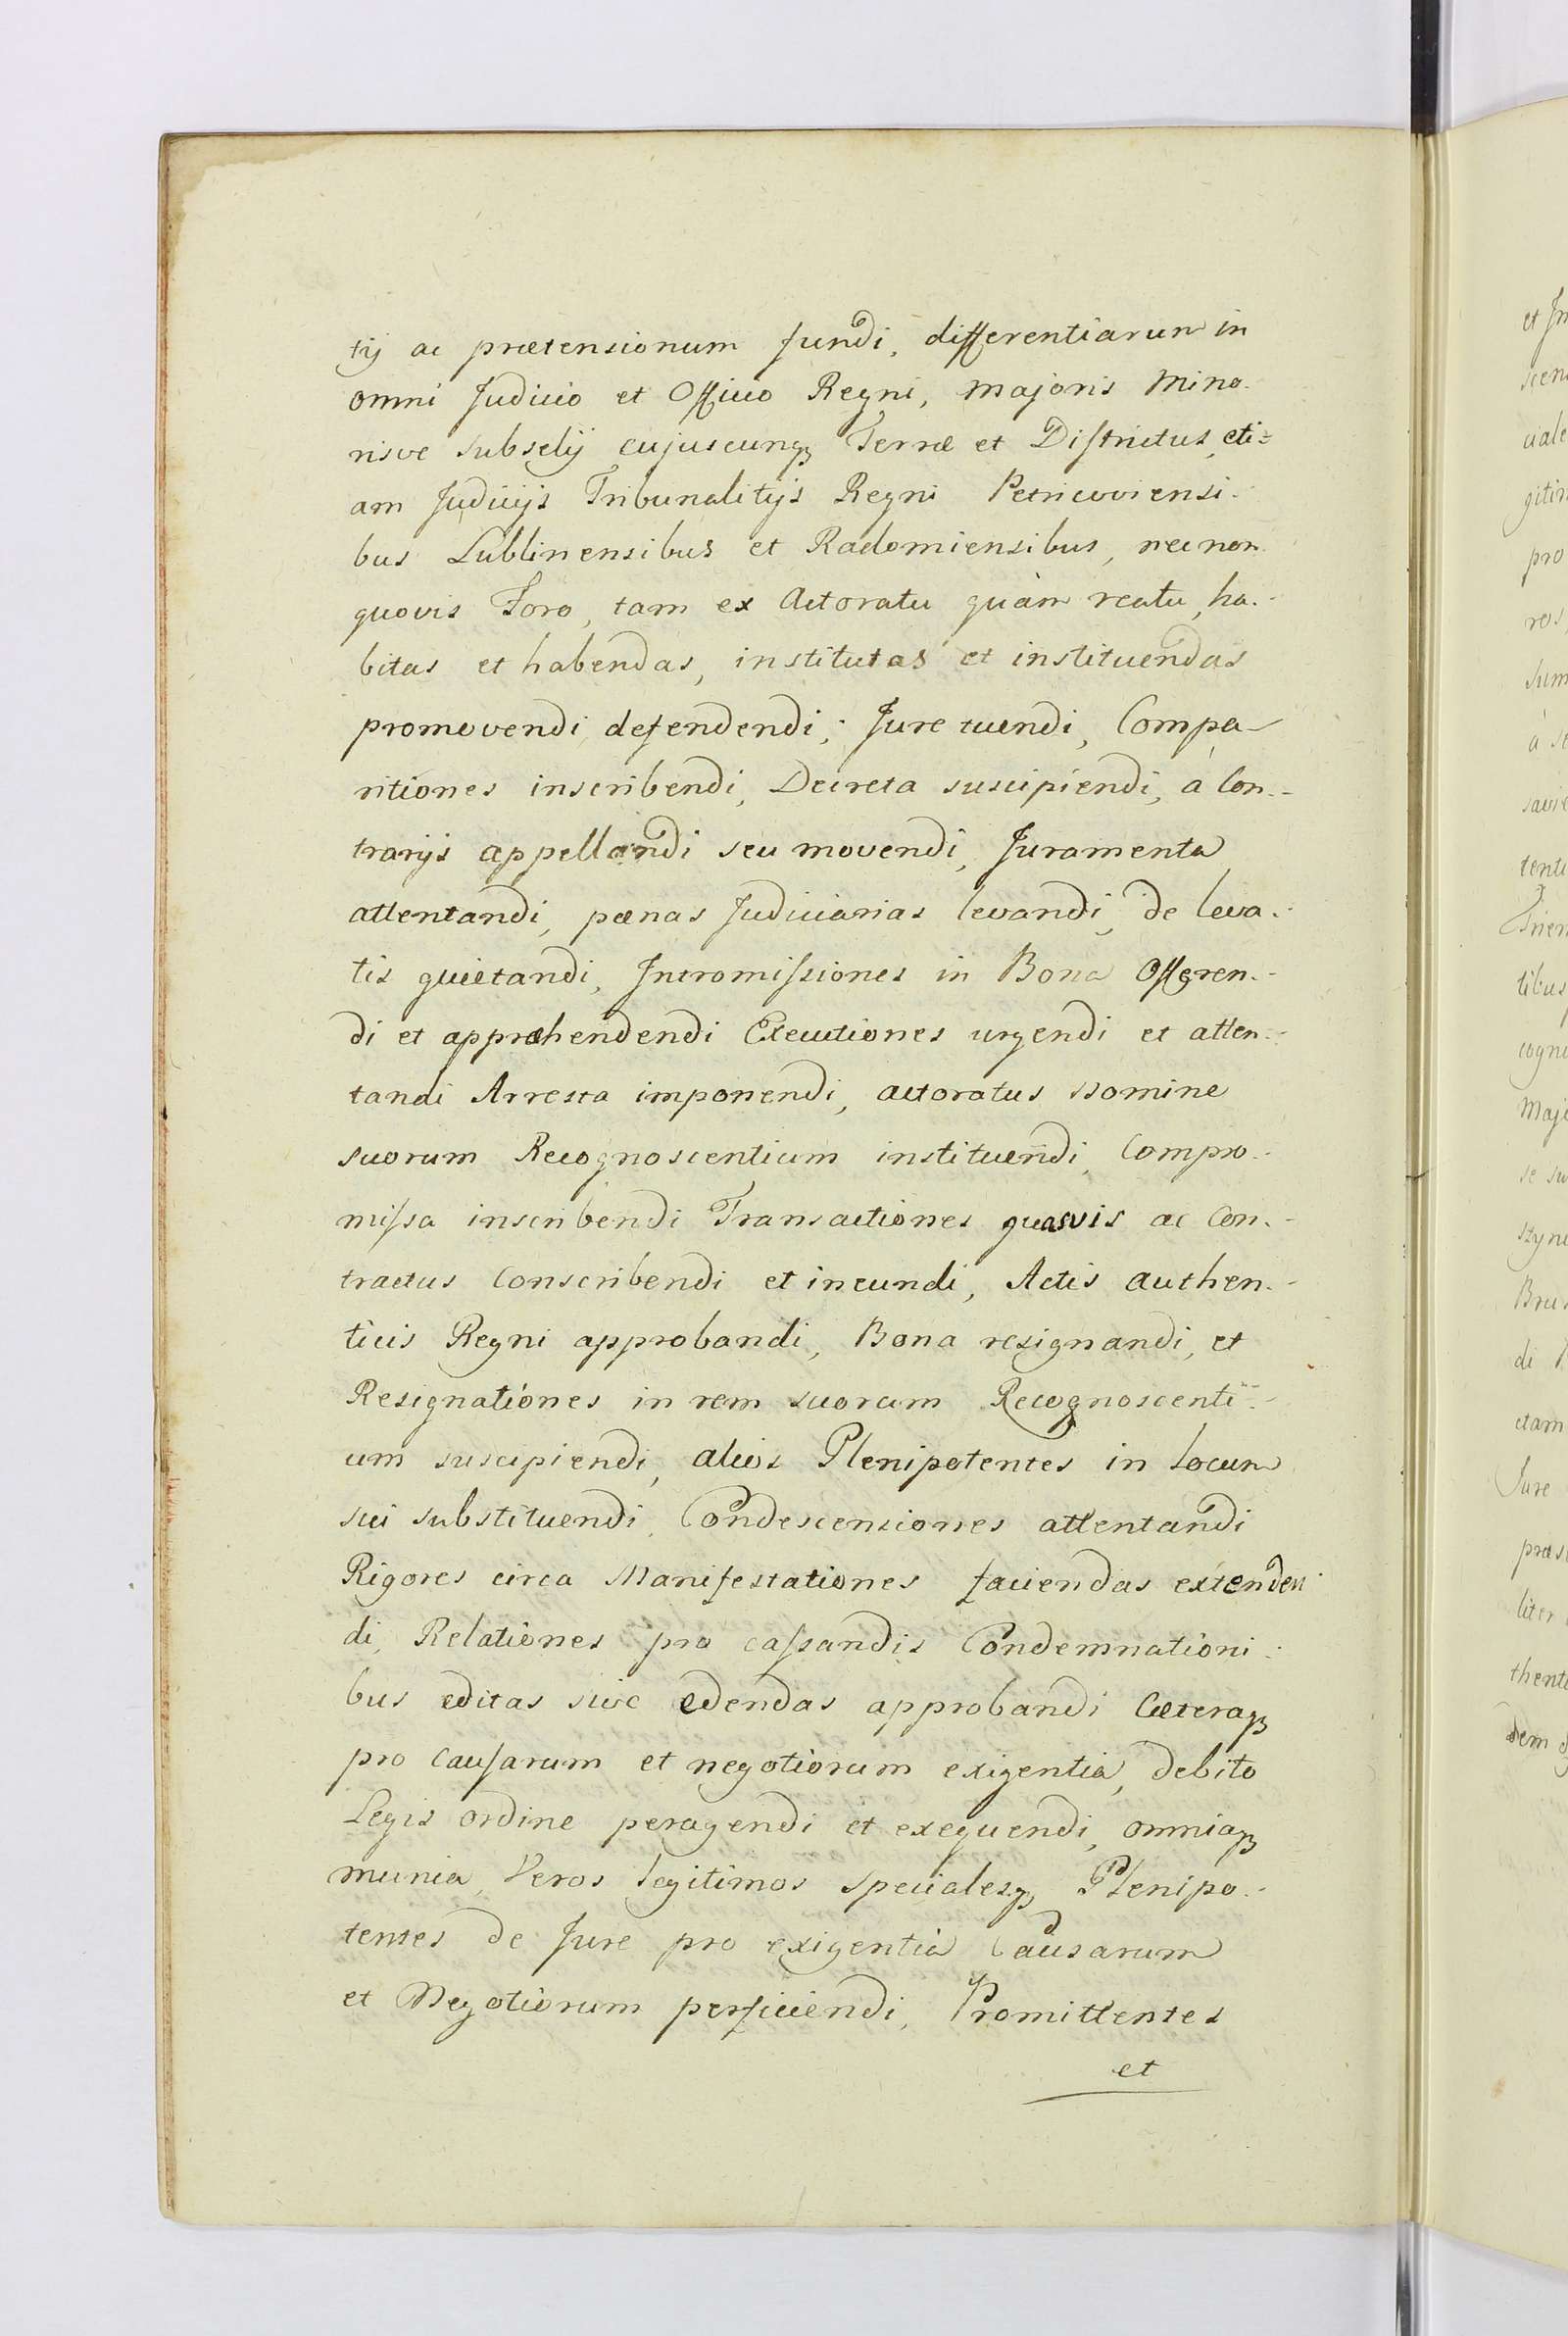 tij ac prætensionum fundi, differentiarum in
omni Judicio et Officio Regni, majoris Mino-
risve subselij cujuscunqꝫ Terræ et Districtus, eti=
am Judicijs Tribunalitijs Regni Petricoviensi-
bus Lublinensibus et Radomiensibus, necnon
quovis Foro, tam ex Actoratu quàm reatu, ha-
bitas et habendas, institutas et instituendas
promovendi defendendi, Jure tuendi, Compa-
ritiones inscribendi, Decreta suscipiendi, à Con-
trarijs appellandi seu movendi, Juramenta
attentandi, pænas Judiciarias levandi, de leva-
tis quietandi, Intromissiones in Bona Offeren-
di et appræhendendi Executiones urgendi et atten-
tandi Arresta imponendi, actoratus Nomine
suorum Recognoscentium instituendi, Compro-
missa inscribendi Transactiones quasvis ac Con-
tractus Conscribendi et ineundi, Actis authen-
ticis Regni approbandi, Bona resignandi, et
Resignationes in rem suorum Recognoscenti-
um suscipiendi, alios Plenipotentes in Locum
sui substituendi, Condescensiones attentandi
Rigores circa Manifestationes faciendas extenden-
di, Relationes pro cassandis Condemnationi-
bus editas sive edendas approbandi Cæteraqꝫ
pro causarum et negotiorum exigentia, debito
Legis ordine peragendi et exequendi, omniaqꝫ
munia, Veros legitimos specialesqꝫ Plenipo-
tentes de Jure pro exigentia Causarum
et Negotiorum perficiendi, Promittentes
et